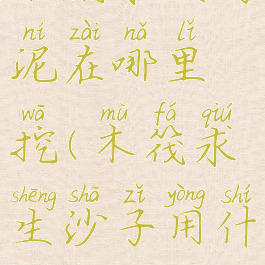 ní zài nǎ lǐ
泥在哪里
wā mù fá qiú
挖(木筏求
shēng shā zǐ yòng shí
生沙子用什